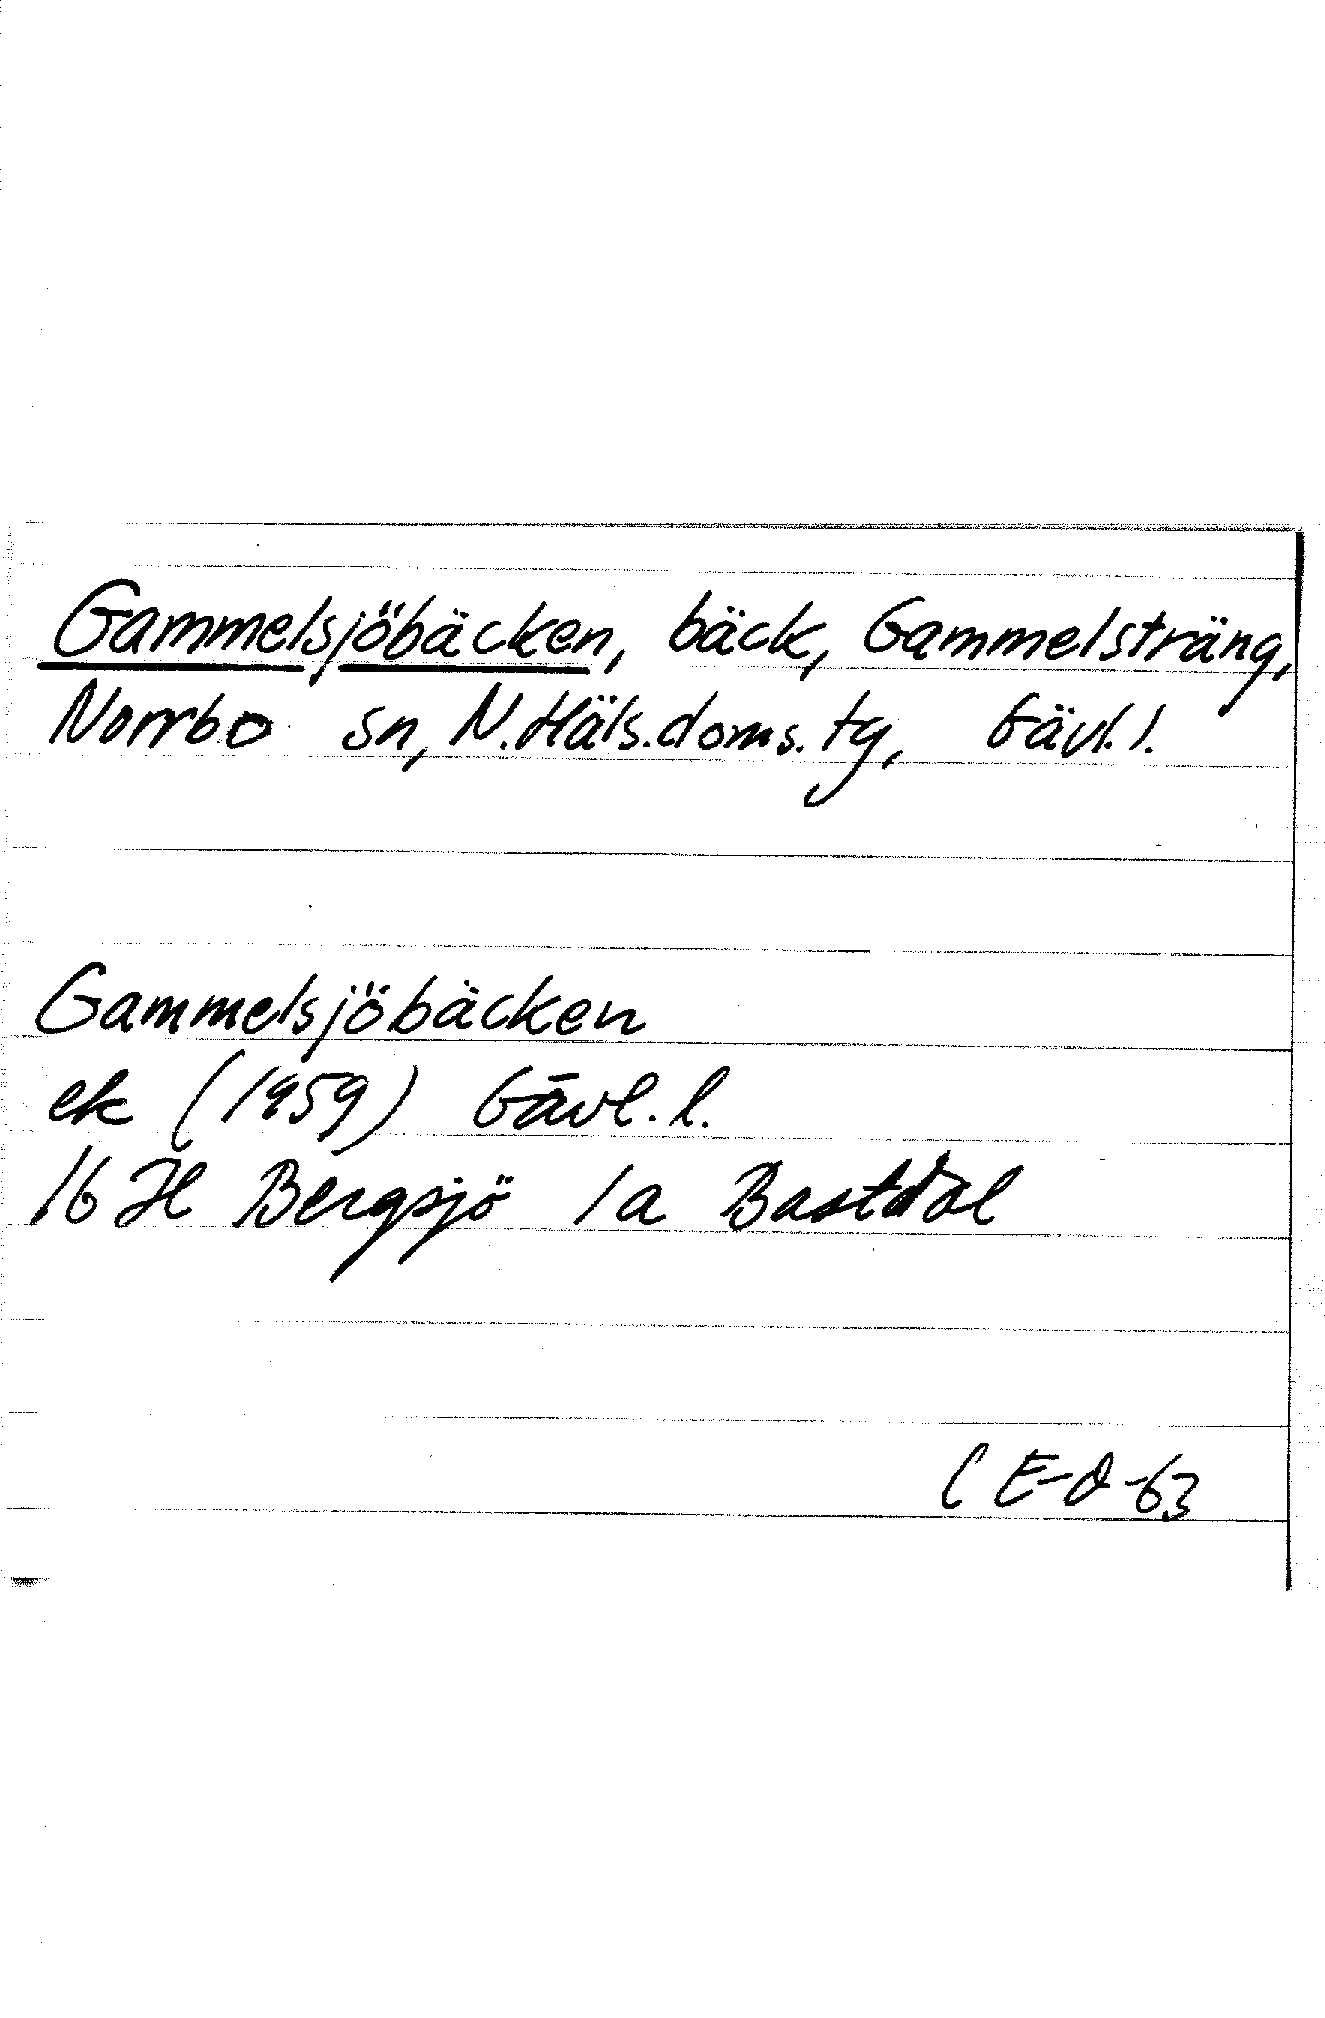 Gammelsjöbäcken, bäck, Gammelsträng,
Norrbo sn, N.Häls.doms.tg, Gävl.l.
Gammelsjöbäcken
ek (1959) Gävl.l.
16 H Bergsjö 1a Bastdal
CE-O-63